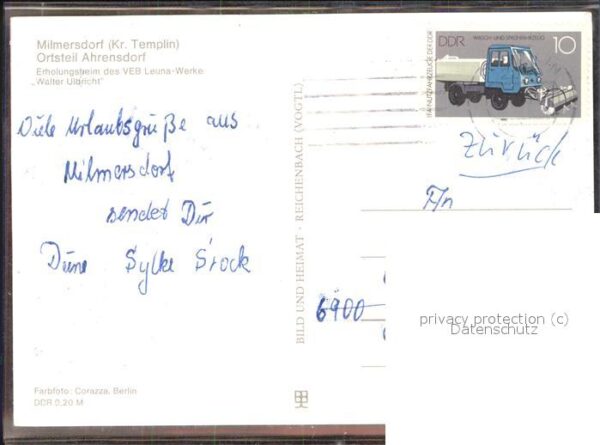 Milmersdorf (Kr. Templin)
Ortsteil Ahrensdorf
Erholungsheim des VEB Leuna-Werke
„Walter Ulbricht"
Viele Urlaubsgrüße aus
Milmersdorf
sendet Dir
Deine Sylke Stock
Farbfoto: Corazza, Berlin
DDR 0,20 M
BILD UND HEIMAT · REICHENBACH (VOGTL)
DDR
WASCH- UND SPRENGFAHRZEUG
10
IFA-NUTZFAHRZEUGE DER DDR
Zurück
F/n
6900
privacy protection (c)
Datenschutz